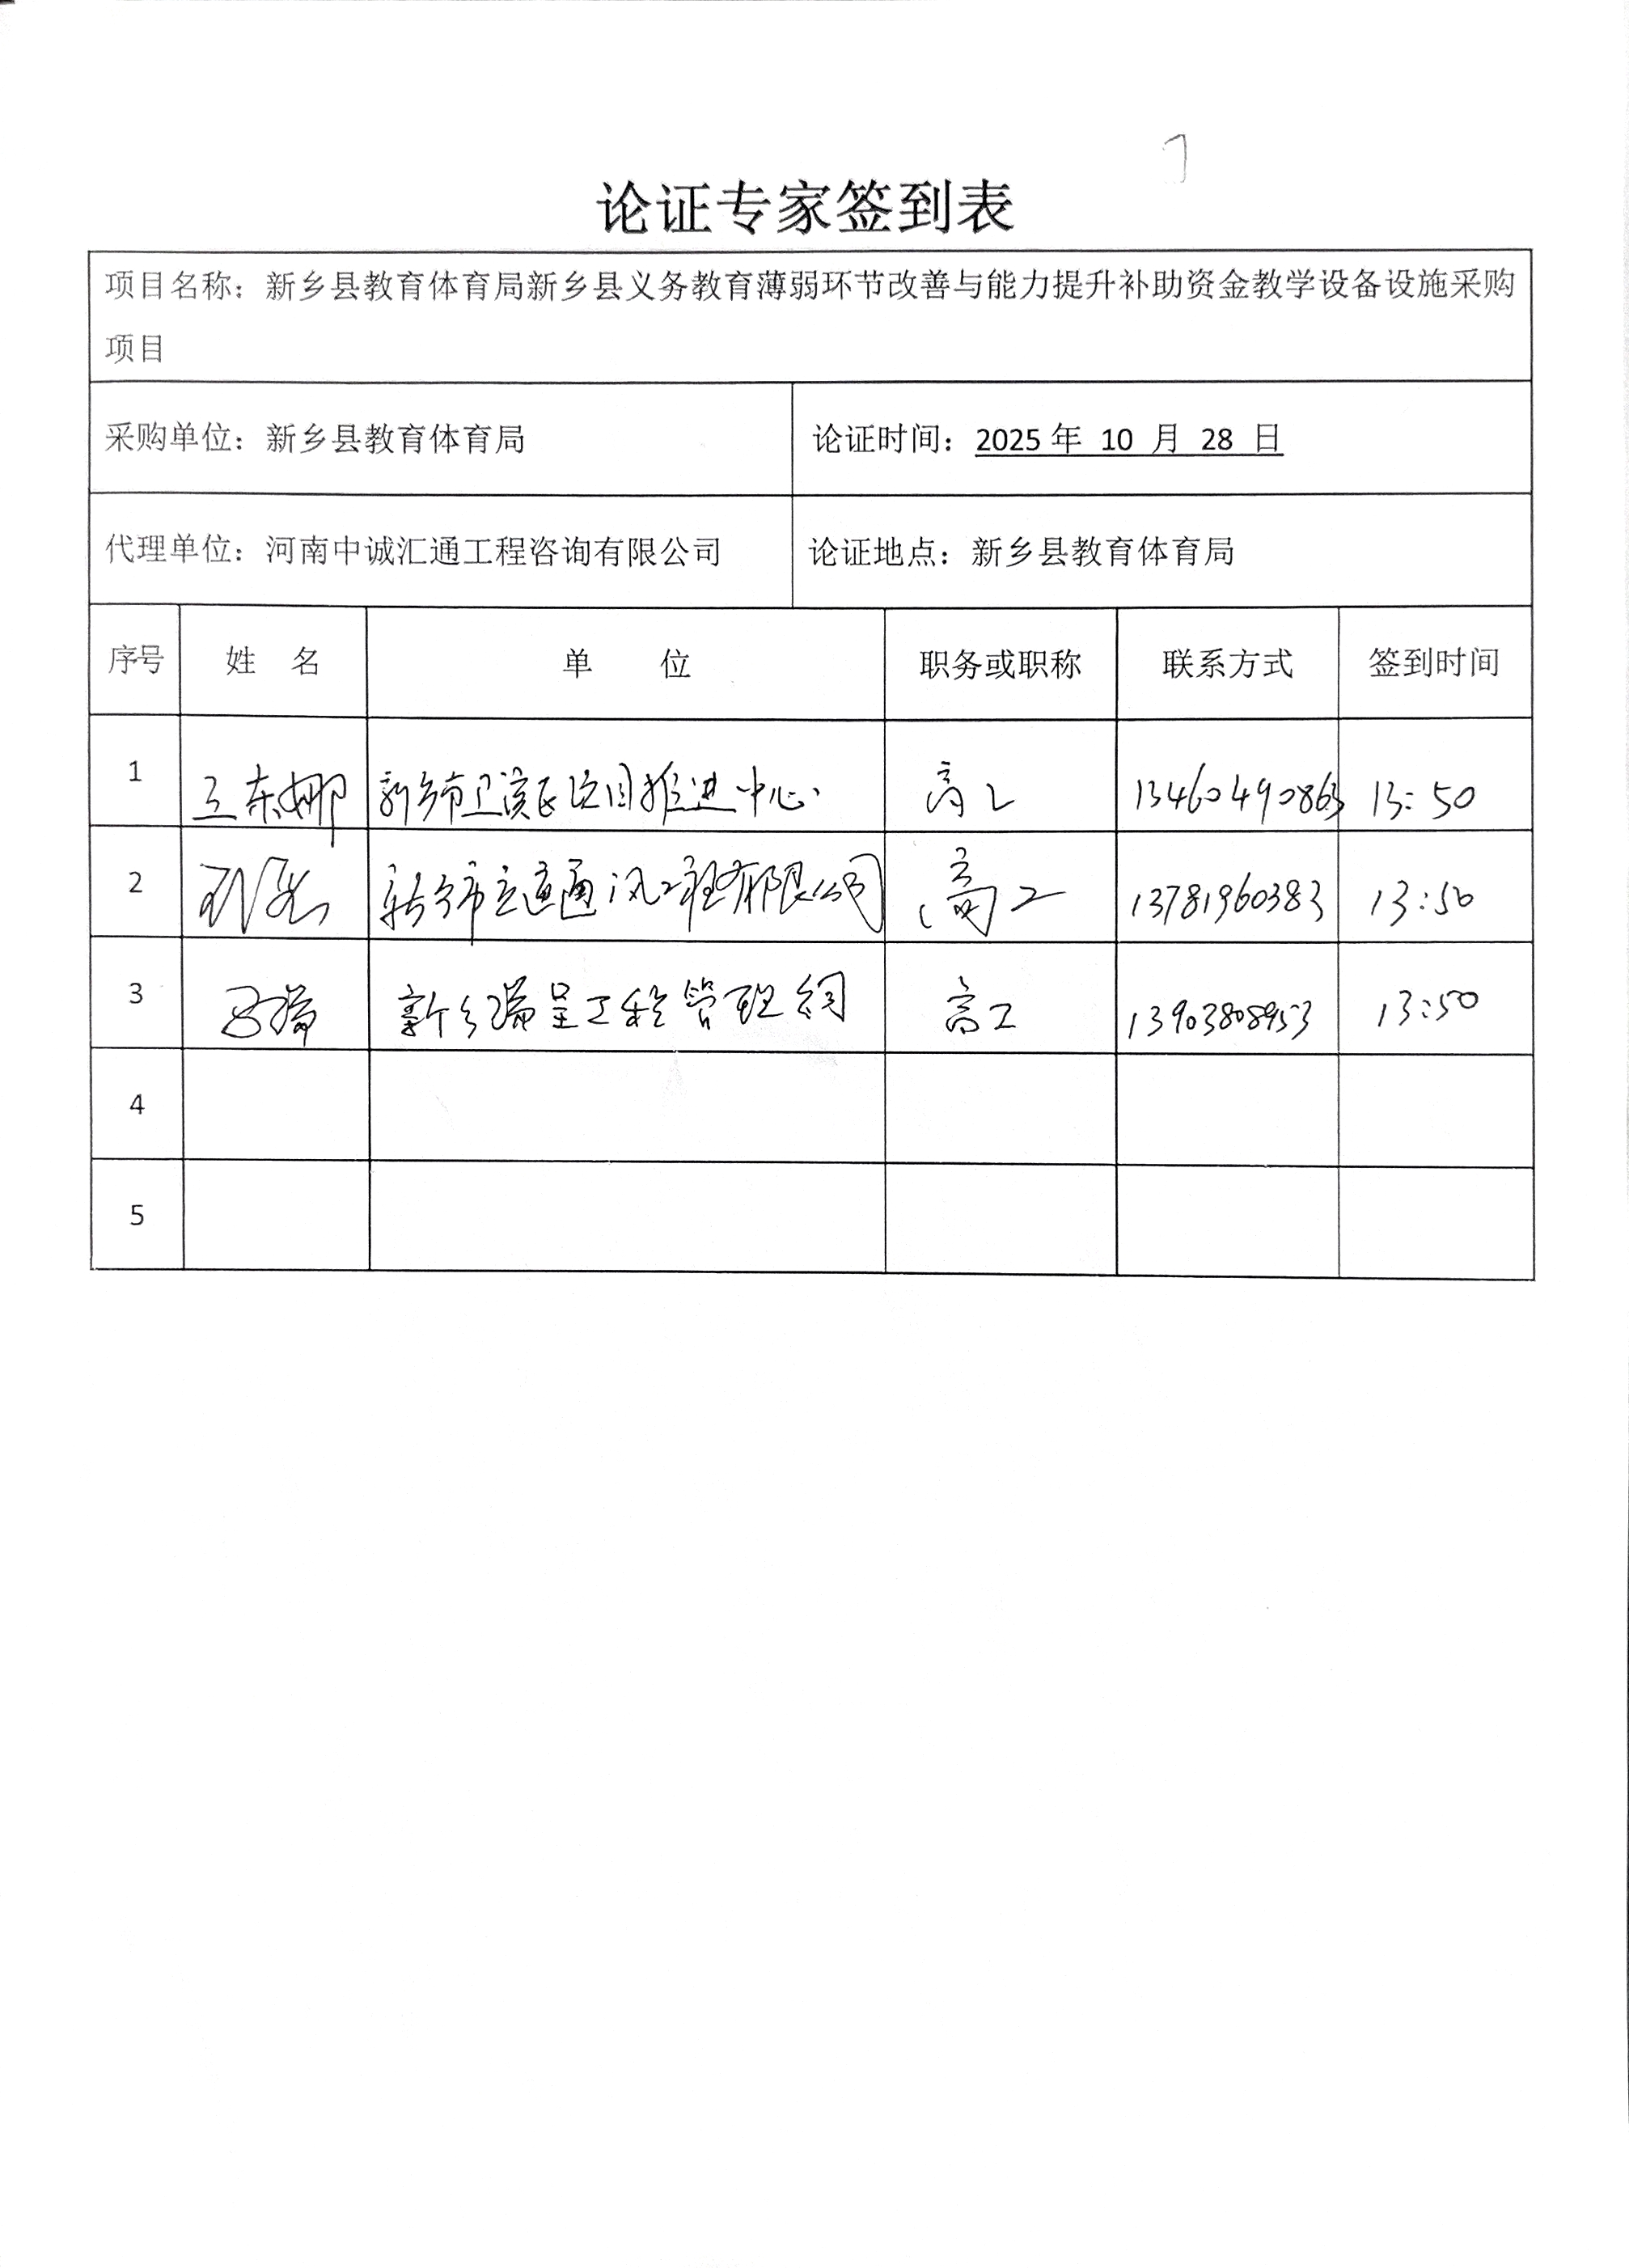 论证专家签到表
项目名称：新乡县教育体育局新乡县义务教育薄弱环节改善与能力提升补助资金教学设备设施采购
项目
采购单位：新乡县教育体育局 论证时间：2025 年 10 月 28 日
代理单位：河南中诚汇通工程咨询有限公司 论证地点：新乡县教育体育局
序号 姓 名 单 位 职务或职称 联系方式 签到时间
1 王东娜 新乡市卫滨区项目推进中心 高工 13460490863 13:50
2 新乡市 通风工程有限公司 高工 13781960383 13:50
3 新乡瑞呈工程管理 高工 13903808953 13:50
4
5